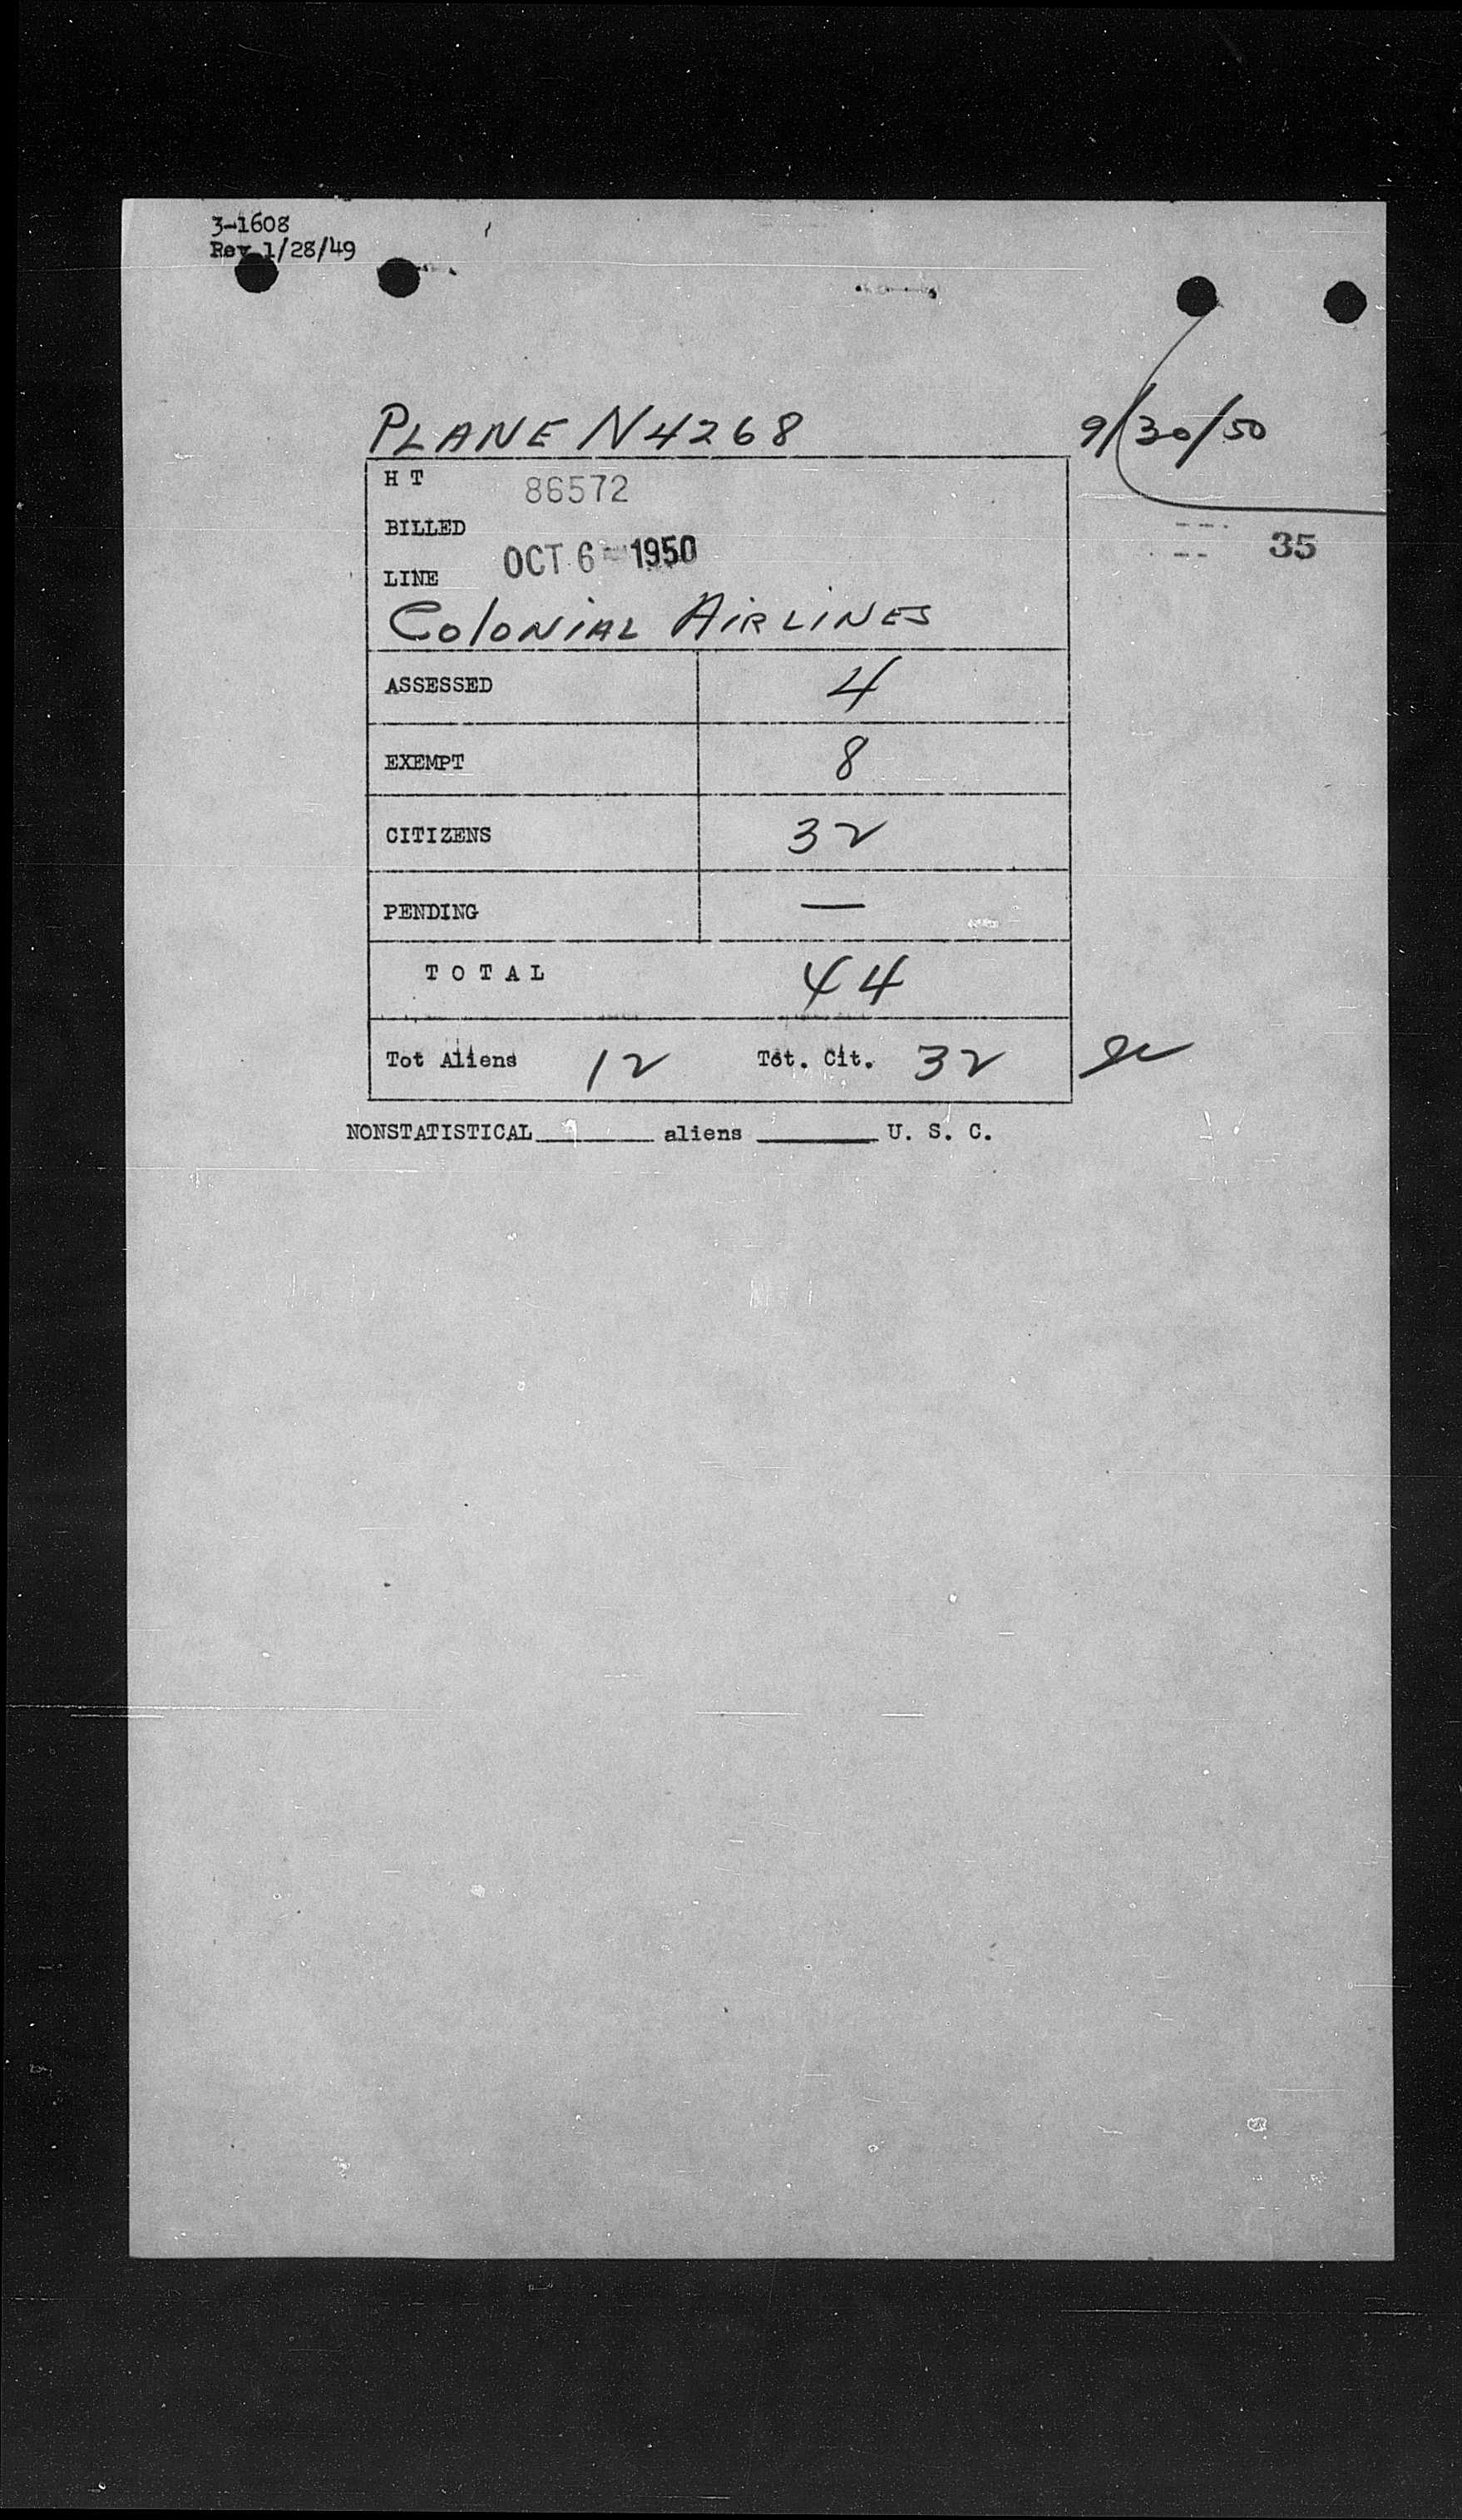 3-1608
Rev 1/28/49
PLANE N4268 9/30/50
H T 86572
BILLED
OCT 6 - 1950
35
LINE
COLONIAL AIRLINES
ASSESSED 4
EXEMPT 8
CITIZENS 32
PENDING —
T O T A L 44
Tot Aliens 12 Tot. Cit. 32
NONSTATISTICAL________ aliens ________ U. S. C.